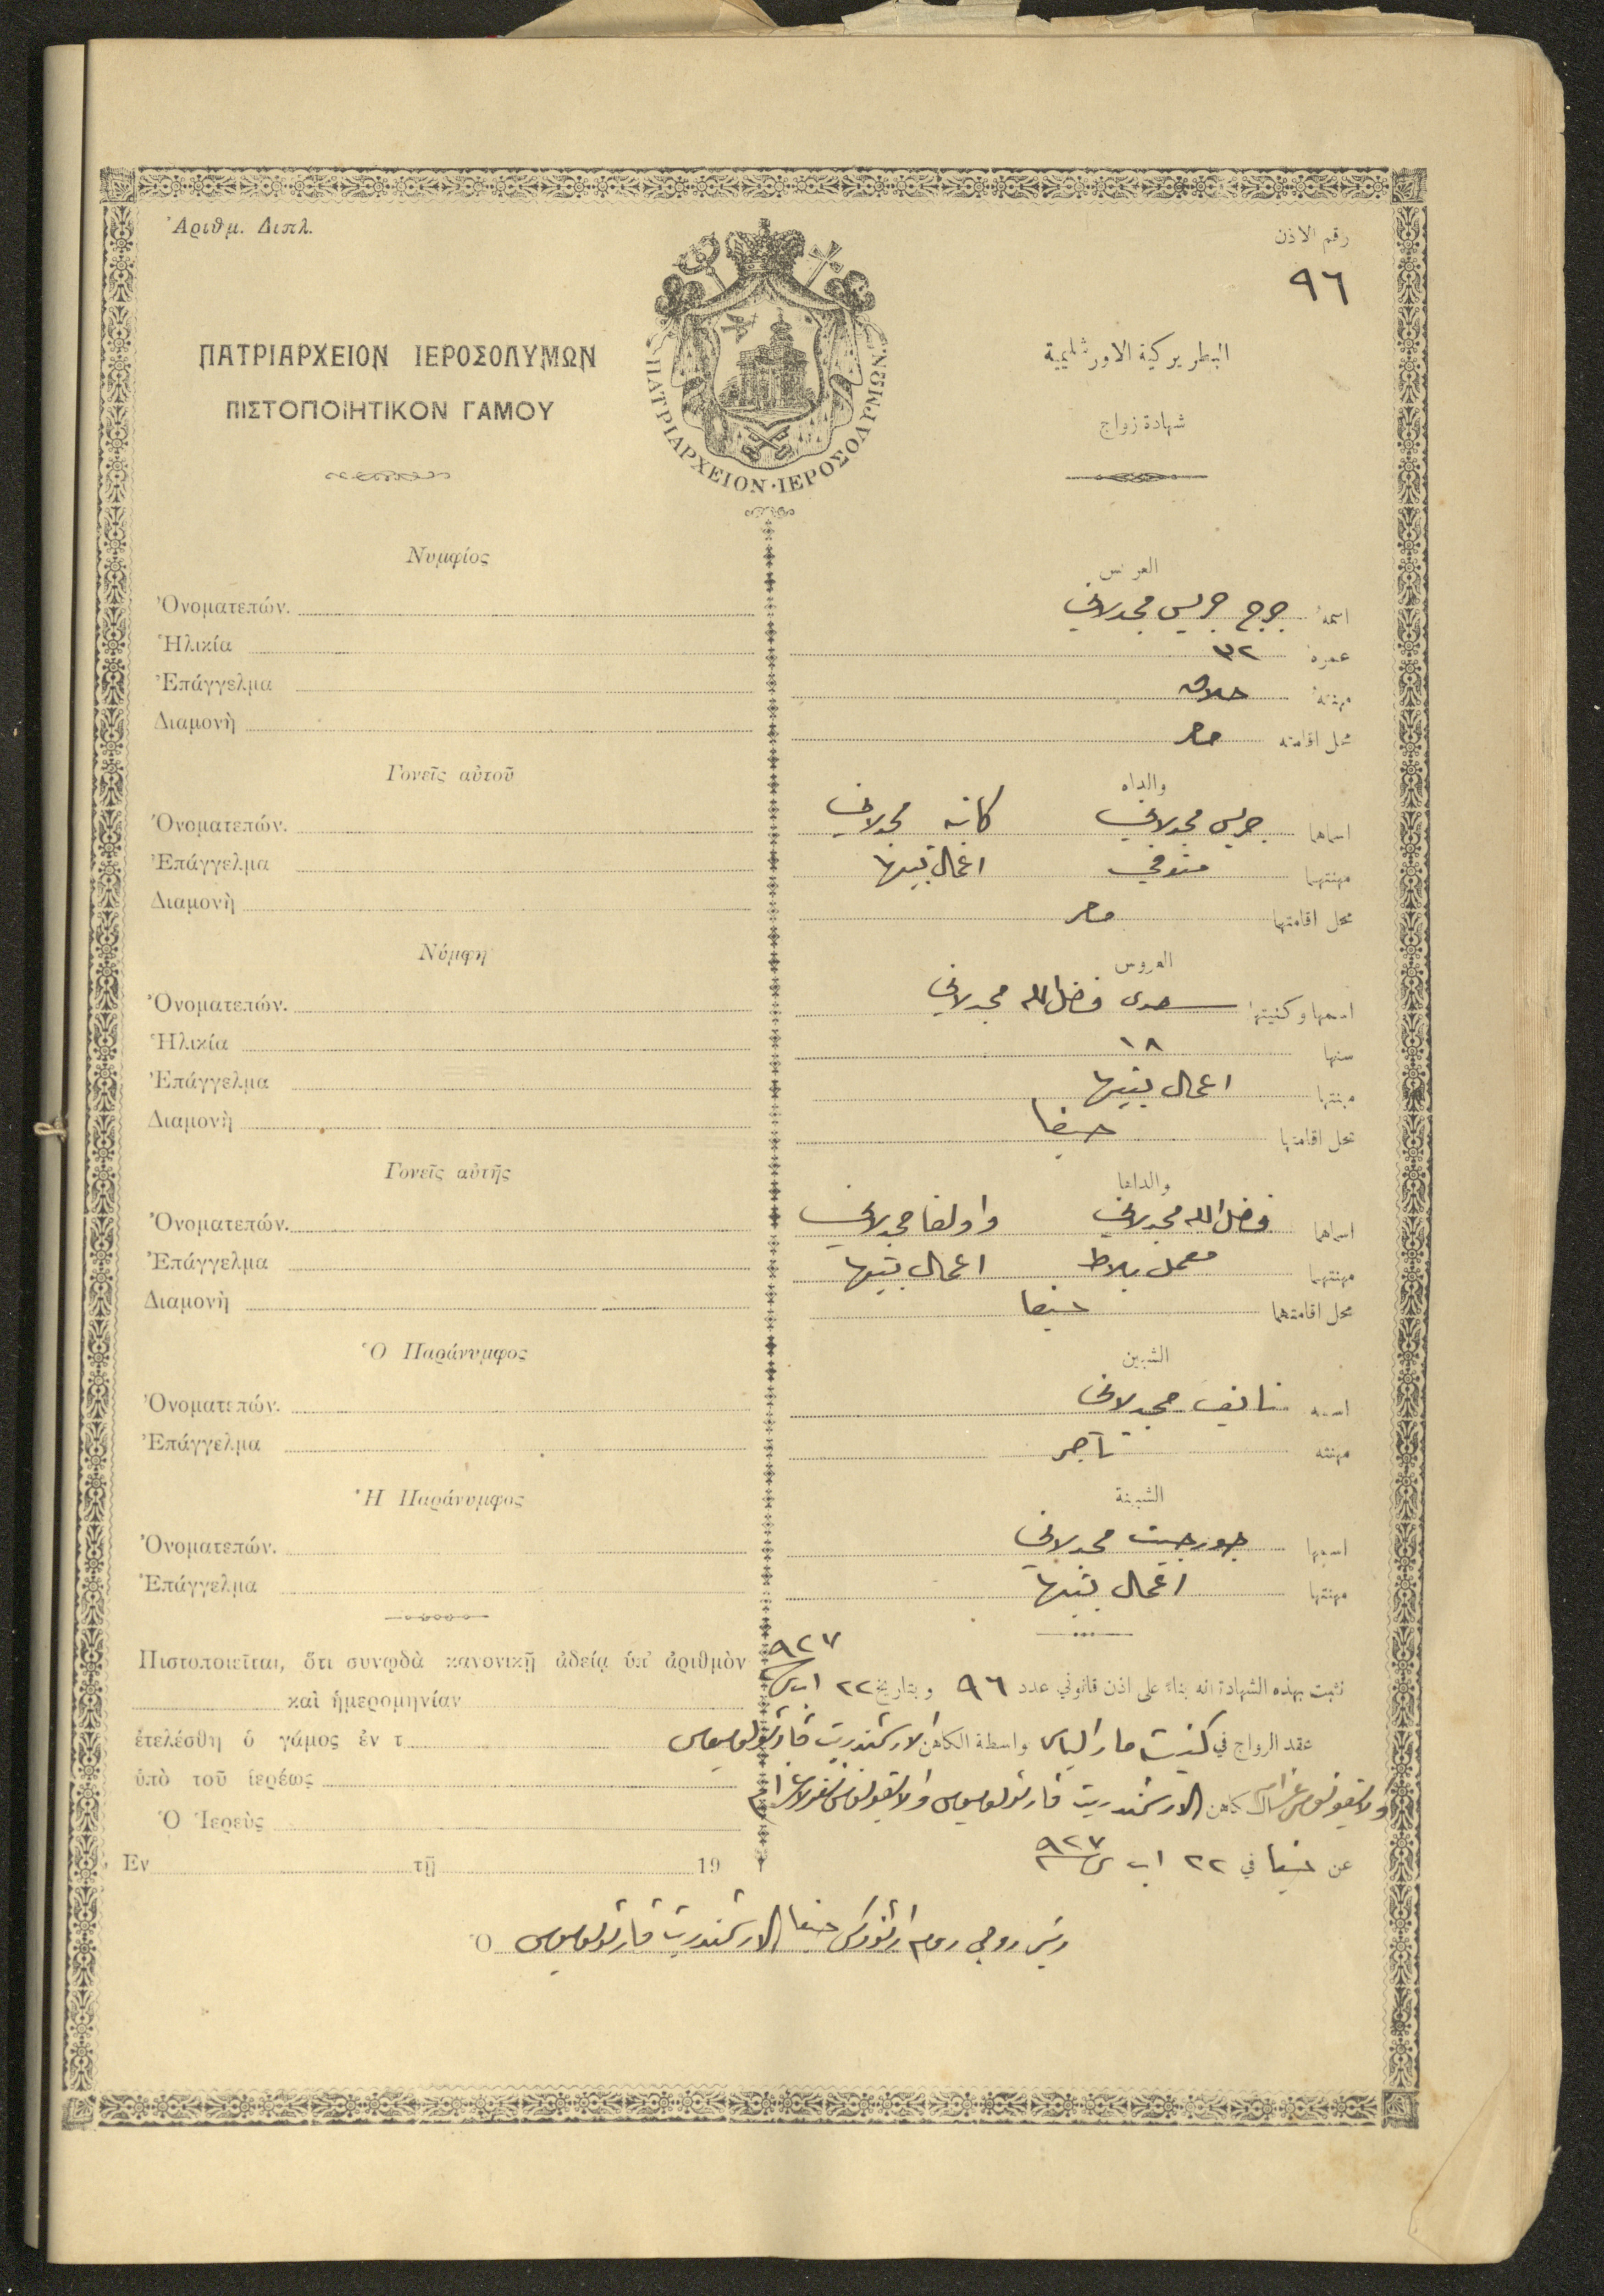 Ἀριθμ. Διπλ.
رقم الاذن
٩٦
ΠΑΤΡΙΑΡΧΕΙΟΝ ΙΕΡΟΣΟΛΥΜΩΝ
ΠΙΣΤΟΠΟΙΗΤΙΚΟΝ ΓΑΜΟΥ
ΠΑΤΡΙΑΡΧΕΙΟΝ·ΙΕΡΟΣΟΛΥΜΩΝ
البطريركية الاورشليمية
شهادة زواج
Νυμφίος
Ὀνοματεπών.
Ἡλικία
Ἐπάγγελμα
Διαμονὴ
Γονεῖς αὐτοῦ
Ὀνοματεπών.
Ἐπάγγελμα
Διαμονὴ
Νύμφη
Ὀνοματεπών.
Ἡλικία
Ἐπάγγελμα
Διαμονὴ
Γονεῖς αὐτῆς
Ὀνοματεπών.
Ἐπάγγελμα
Διαμονὴ
Ὁ Παράνυμφος
Ὀνοματεπών.
Ἐπάγγελμα
Ἡ Παράνυμφος
Ὀνοματεπών.
Ἐπάγγελμα
Πιστοποιεῖται, ὅτι συνῳδὰ κανονικῇ ἀδείᾳ ὑπ' ἀριθμὸν
καὶ ἡμερομηνίαν
ἐτελέσθη ὁ γάμος ἐν τ
ὑπὸ τοῦ ἱερέως
Ὁ Ἱερεὺς
Ἐν τῇ 19
العريس
اسمه جرج جريس مجدلاني
عمره ٣٢
مهنته حلاق
محل اقامته مصر
والداه
اسماهما جريس مجدلاني مجدلاني
مهنتهما متوفي اعمال بيتها
محل اقامتهما مصر
العروس
اسمها وكنيتها سعدى فضل الله مجدلاني
سنها ١٨
مهنتها اعمال بيتها
محل اقامتها حيفا
والداها
اسماهما فضل الله مجدلاني مجدلاني
مهنتهما معمل بلاط اعمال بيتها
محل اقامتهما حيفا
الشبين
اسمه نايف مجدلاني
مهنته تاجر
الشبينة
اسمها جورجيت مجدلاني
مهنتها اعمال بيتها
٩٢٧
نثبت بهذه الشهادة انه بناء على اذن قانوني عدد ٩٦ وبتاريخ ٢٢ اب
عقد الزواج في كنيسة مار الياس واسطة الكاهن الارشمندريت
الكاهن الارشمندريت
عن حيفا في ٢٢ اب ٩٢٧
Ὁ رئيس روحي روم ارثوذكس حيفا الارشمندريت